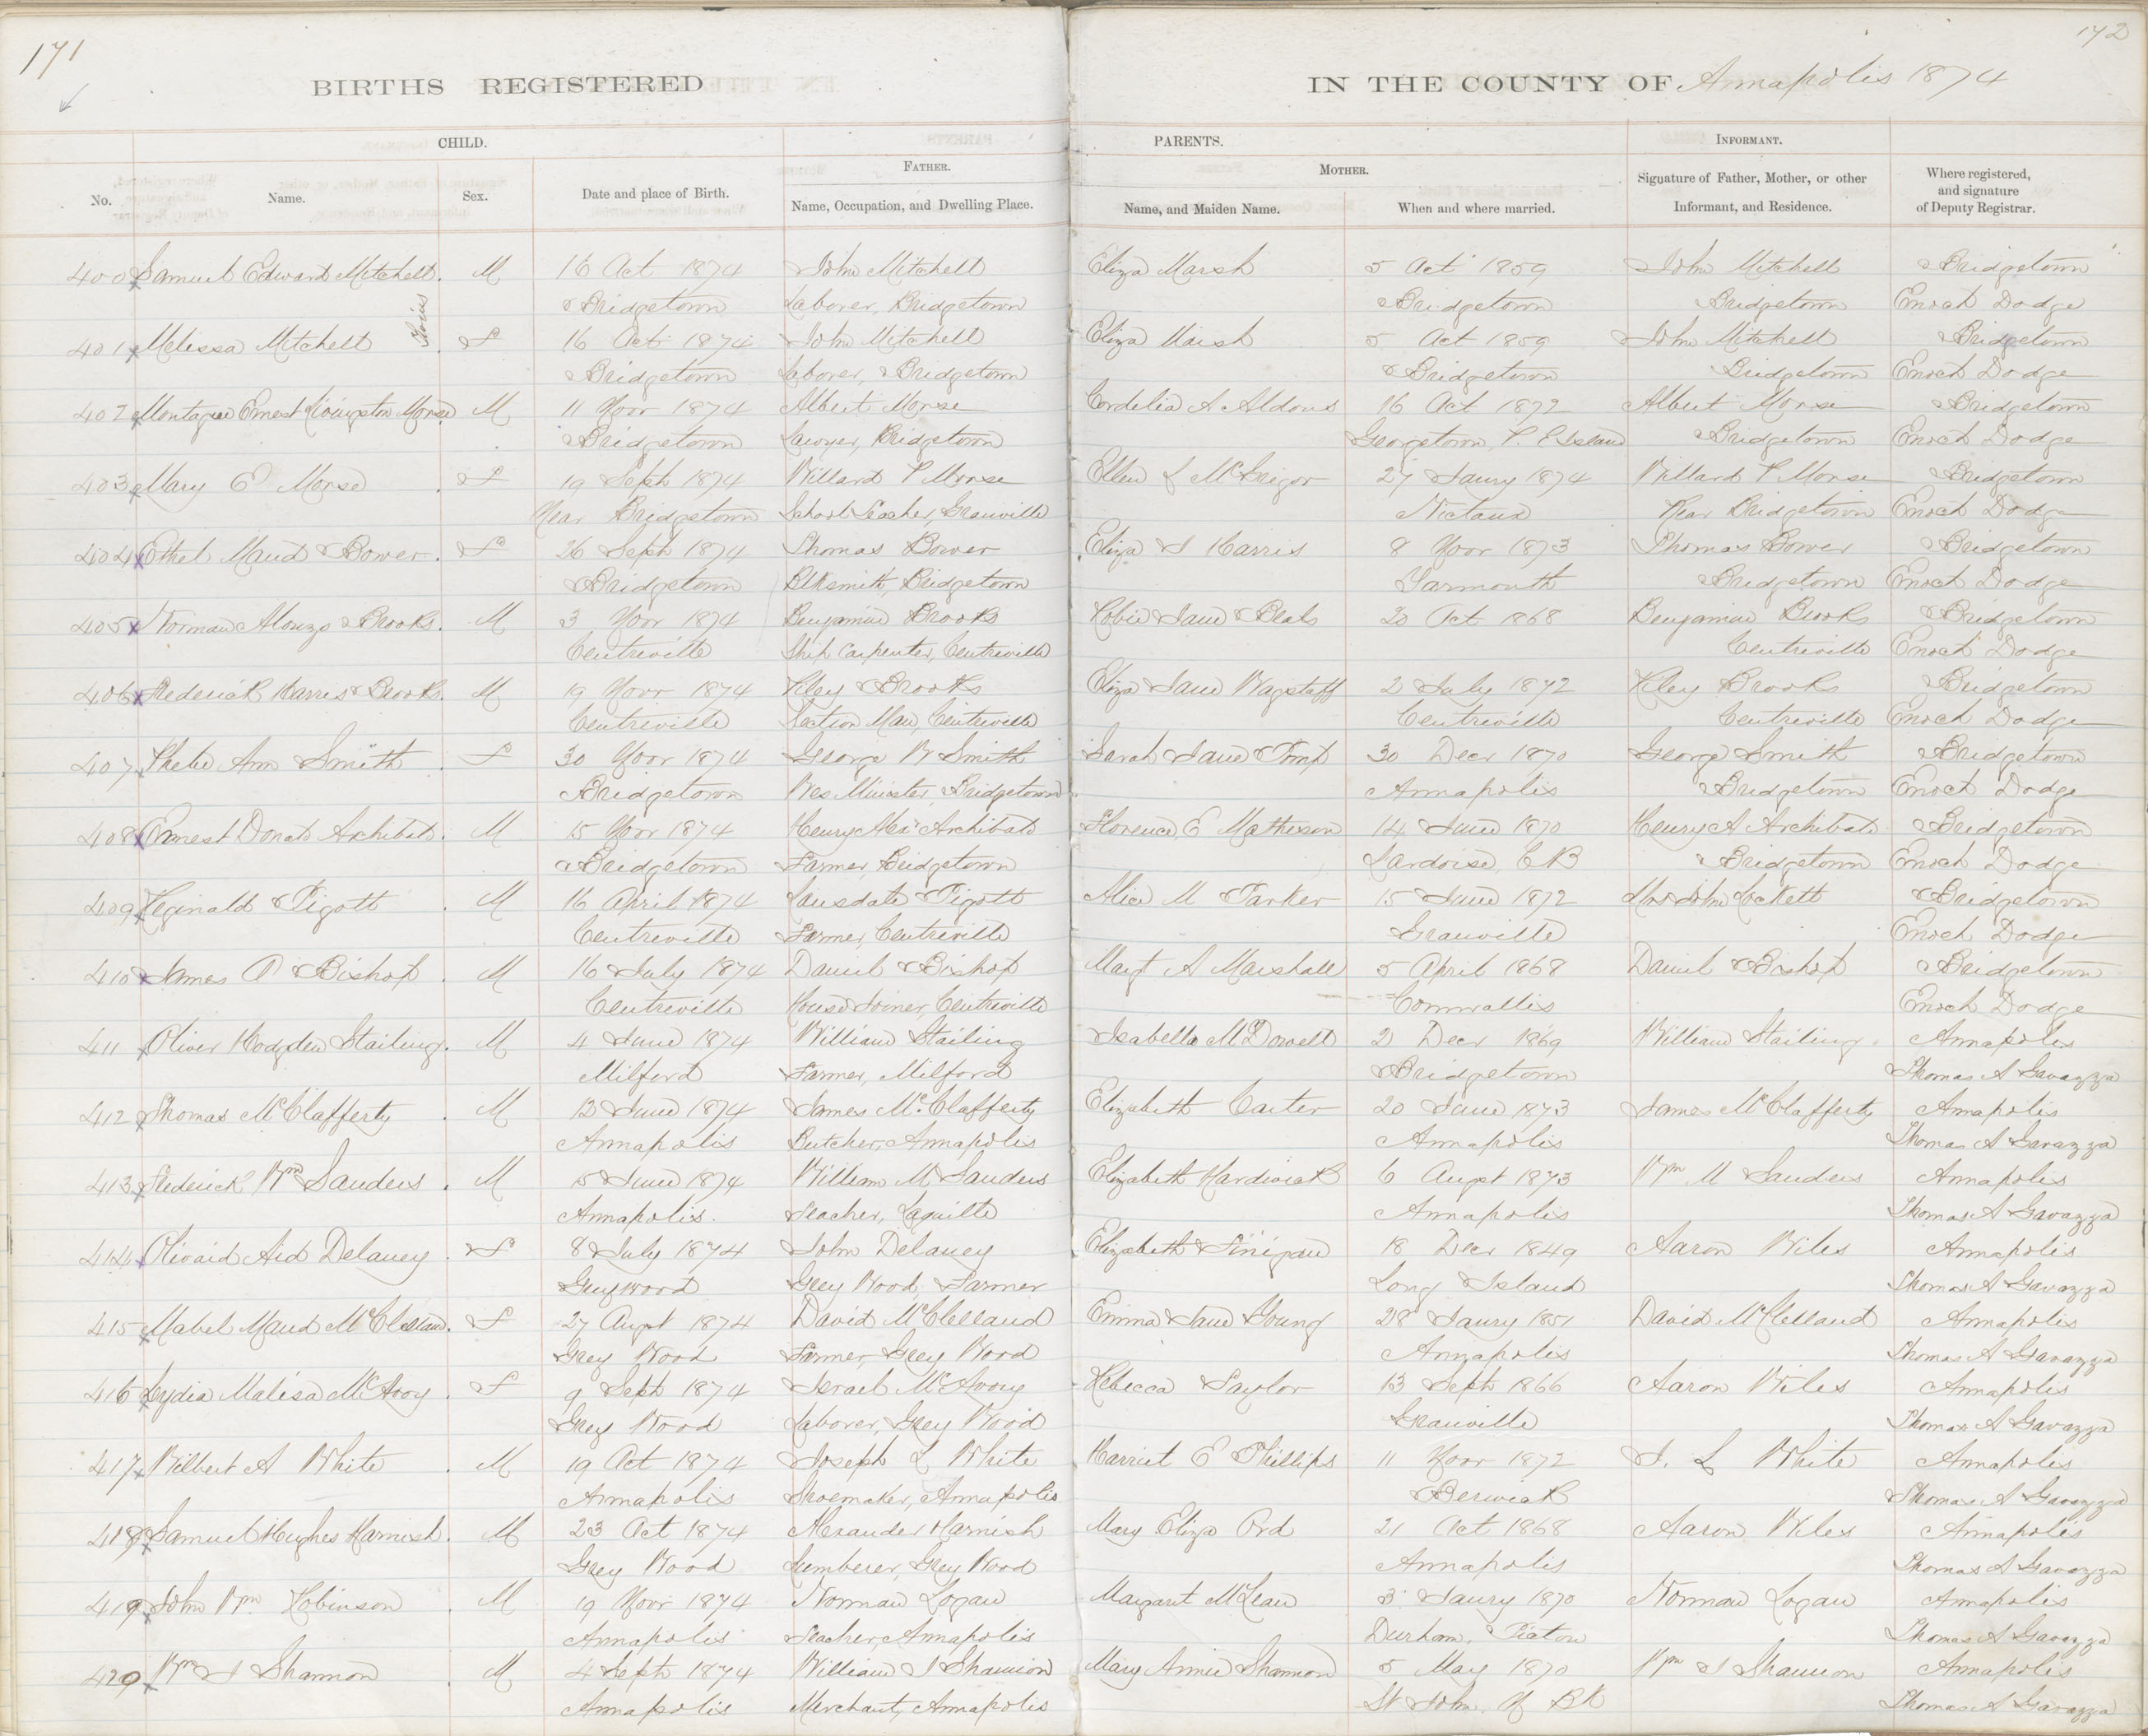 171
172
BIRTHS REGISTERED IN THE COUNTY OF Annapolis 1874
CHILD. PARENTS. INFORMANT.
FATHER. MOTHER.
No. Name. Sex. Date and place of Birth. Name, Occupation, and Dwelling Place. Name, and Maiden Name. When and where married. Signature of Father, Mother, or other Informant, and Residence. Where registered, and signature of Deputy Registrar.
400 Samuel Edward Mitchell. M 16 Oct 1874 John Mitchell Eliza Marsh 5 Oct 1859 John Mitchell Bridgetown
Twins Bridgetown Laborer, Bridgetown Bridgetown Bridgetown Enoch Dodge
401 Melissa Mitchell F 16 Oct 1874 John Mitchell Eliza Marsh 5 Oct 1859 John Mitchell Bridgetown
Bridgetown Laborer, Bridgetown Bridgetown Bridgetown Enoch Dodge
402 Montague Ernest Livingston Morse M 11 Novr 1874 Albert Morse Cordelia A Aldous 16 Oct 1872 Albert Morse Bridgetown
Bridgetown Lawyer, Bridgetown Georgetown, P. E Island Bridgetown Enoch Dodge
403 Mary E Morse F 19 Sept 1874 Willard P Morse Ellen L McGrigor 27 Jany 1874 Willard P Morse Bridgetown
Near Bridgetown School Teacher, Granville Nictaux Near Bridgetown Enoch Dodge
404 Ethel Maud Bower. F 26 Sept 1874 Thomas Bower Eliza J Harris 8 Novr 1873 Thomas Bower Bridgetown
Bridgetown Blksmith, Bridgetown Yarmouth Bridgetown Enoch Dodge
405 Norman Alonzo Brooks. M 3 Novr 1874 Benjamin Brooks Robie Jane Beals 20 Oct 1868 Benjamin Brooks Bridgetown
Centreville Ship Carpenter, Centreville Centreville Enoch Dodge
406 Frederick Harris Brooks. M 19 Novr 1874 Riley Brooks Eliza Jane Wagstaff 2 July 1872 Riley Brooks Bridgetown
Centreville Section Man, Centreville Centreville Centreville Enoch Dodge
407 Phebe Ann Smith F 30 Novr 1874 George W Smith Sarah Jane 30 Decr 1870 George Smith Bridgetown
Bridgetown Wes Minister, Bridgetown Annapolis Bridgetown Enoch Dodge
408 Ernest Donald Archibald. M 15 Novr 1874 Henry Alexr Archibald Florence E Matheson 14 June 1870 Henry A Archibald Bridgetown
Bridgetown Farmer, Bridgetown Lardoise, C B Bridgetown Enoch Dodge
409 Reginald Pigott M 16 April 1874 Lansdale Pigott Alice M Parker 15 June 1872 Mrs John Lockett Bridgetown
Centreville Farmer, Centreville Granville Enoch Dodge
410 James P Bishop M 16 July 1874 Daniel Bishop Margt A Marshall 5 April 1868 Daniel Bishop Bridgetown
Centreville House Joiner, Centreville Cornwallis Enoch Dodge
411 Oliver Hogden Stailing. M 4 June 1874 William Stailing Isabella McDowell 2 Decr 1869 William Stailing Annapolis
Milford Farmer, Milford Bridgetown Thomas A Gavazza
412 Thomas McClafferty M 12 June 1874 James McClafferty Elizabeth Carter 20 June 1873 James McClafferty Annapolis
Annapolis Butcher, Annapolis Annapolis Thomas A Gavazza
413 Frederick Wm Sanders. M 15 June 1874 William M Sanders Elizabeth Hardwick 6 Augst 1873 Wm M Sanders Annapolis
Annapolis. Teacher, Lequille Annapolis Thomas A Gavazza
414 Aid Delaney F 8 July 1874 John Delaney Elizabeth Finigan 18 Decr 1849 Aaron Wiles Annapolis
Greywood Grey Wood, Farmer Long Island Thomas A Gavazza
415 Mabel Maud McClelland. F 27 Augst 1874 David McClelland Emma Jane Young 28 Jany 1851 David McClelland Annapolis
Grey Wood Farmer, Grey Wood Annapolis Thomas A Gavazza
416 Lydia Malisa McAvoy F 9 Sept 1874 Israel McAvoy Rebecca Saylor 13 Sept 1866 Aaron Wiles Annapolis
Grey Wood Laborer, Grey Wood Granville Thomas A Gavazza
417 Wilbert A White M 19 Oct 1874 Joseph L White Harriet E Phillips 11 Novr 1872 J. L White Annapolis
Annapolis Shoemaker, Annapolis Berwick Thomas A Gavazza
418 Samuel Hughes Harnish. M 23 Oct 1874 Alexander Harnish Mary Eliza Ord 21 Oct 1868 Aaron Wiles Annapolis
Grey Wood Lumberer, Grey Wood Annapolis Thomas A Gavazza
419 John Wm Robinson M 19 Novr 1874 Norman Logan Margaret McLean 3 Jany 1870 Norman Logan Annapolis
Annapolis Teacher, Annapolis Durham, Pictou Thomas A Gavazza
420 Wm J Shannon M 4 Sept 1874 William J Shannon Mary Annie Shannon 5 May 1870 Wm J Shannon Annapolis
Annapolis Merchant, Annapolis St John, N BK Thomas A Gavazza